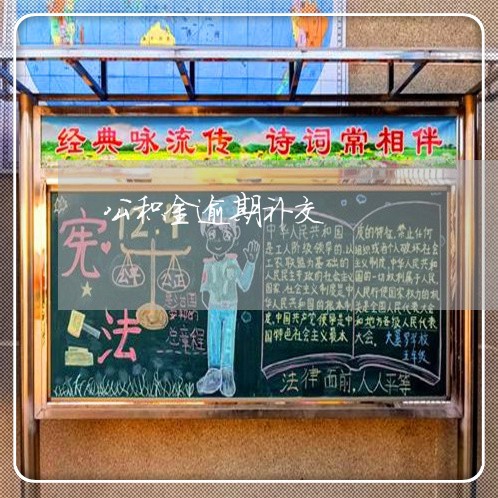 经典咏流传 诗词常相伴
公积金逾期补交
宪法
12.4
公平
公正
总章程
中华人民共和国
是工人阶级领导的,以
工农联盟为基础的
人民民主专政的社会主义
国家,社会主义制度是中
华人民共和国的根本制
度,中国共产党领导是中
国特色社会主义最本
质的特征,禁止任何
组织或者个人破坏社会
主义制度,中华人民共和
国的一切权利属于人民,
人民行使国家权力的机
关是全国人民代表大会
和地方各级人民代表
大会。
五年级
法律面前,人人平等